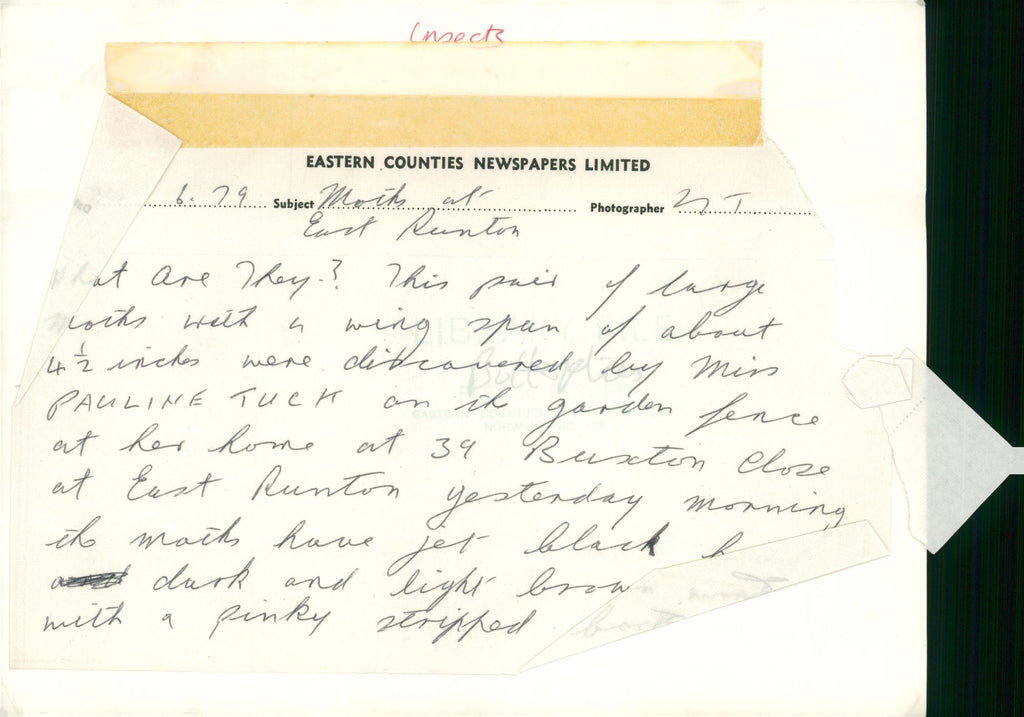 Insects
EASTERN COUNTIES NEWSPAPERS LIMITED
6. 79 Subject Moths at Photographer
East Runton
What Are They? This pair of large
moths with a wing span of about
4½ inches were discovered by Miss
PAULINE TUCK on the garden fence
at her home at 39 Buxton Close
at East Runton yesterday morning
the moths have jet black
dark and light brown
with a pinky stripped body
LIBRARY FILE
Butterflies